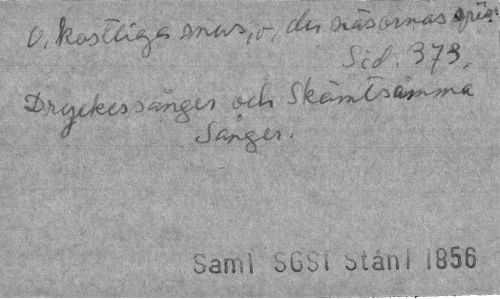 O, kostliga snus, o, du näsornas spis!
Sid. 373.
Dryckessånger och Skämtsamma
Sånger.
Saml SGS1 Stånl 1856